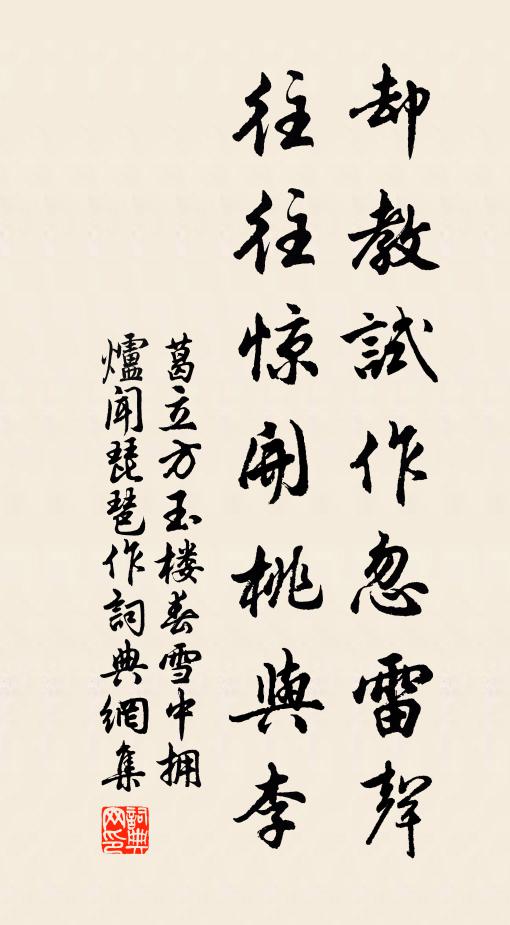 却教試作忽雷聲
往往惊開桃與李
葛立方玉楼春雪中拥
爐聞琵琶作詞典網集
詞典
网印